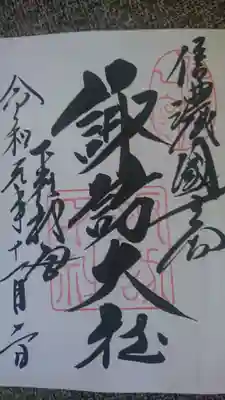 信濃國一之宮
諏訪大社
下社秋宮
令和元年十一月二日